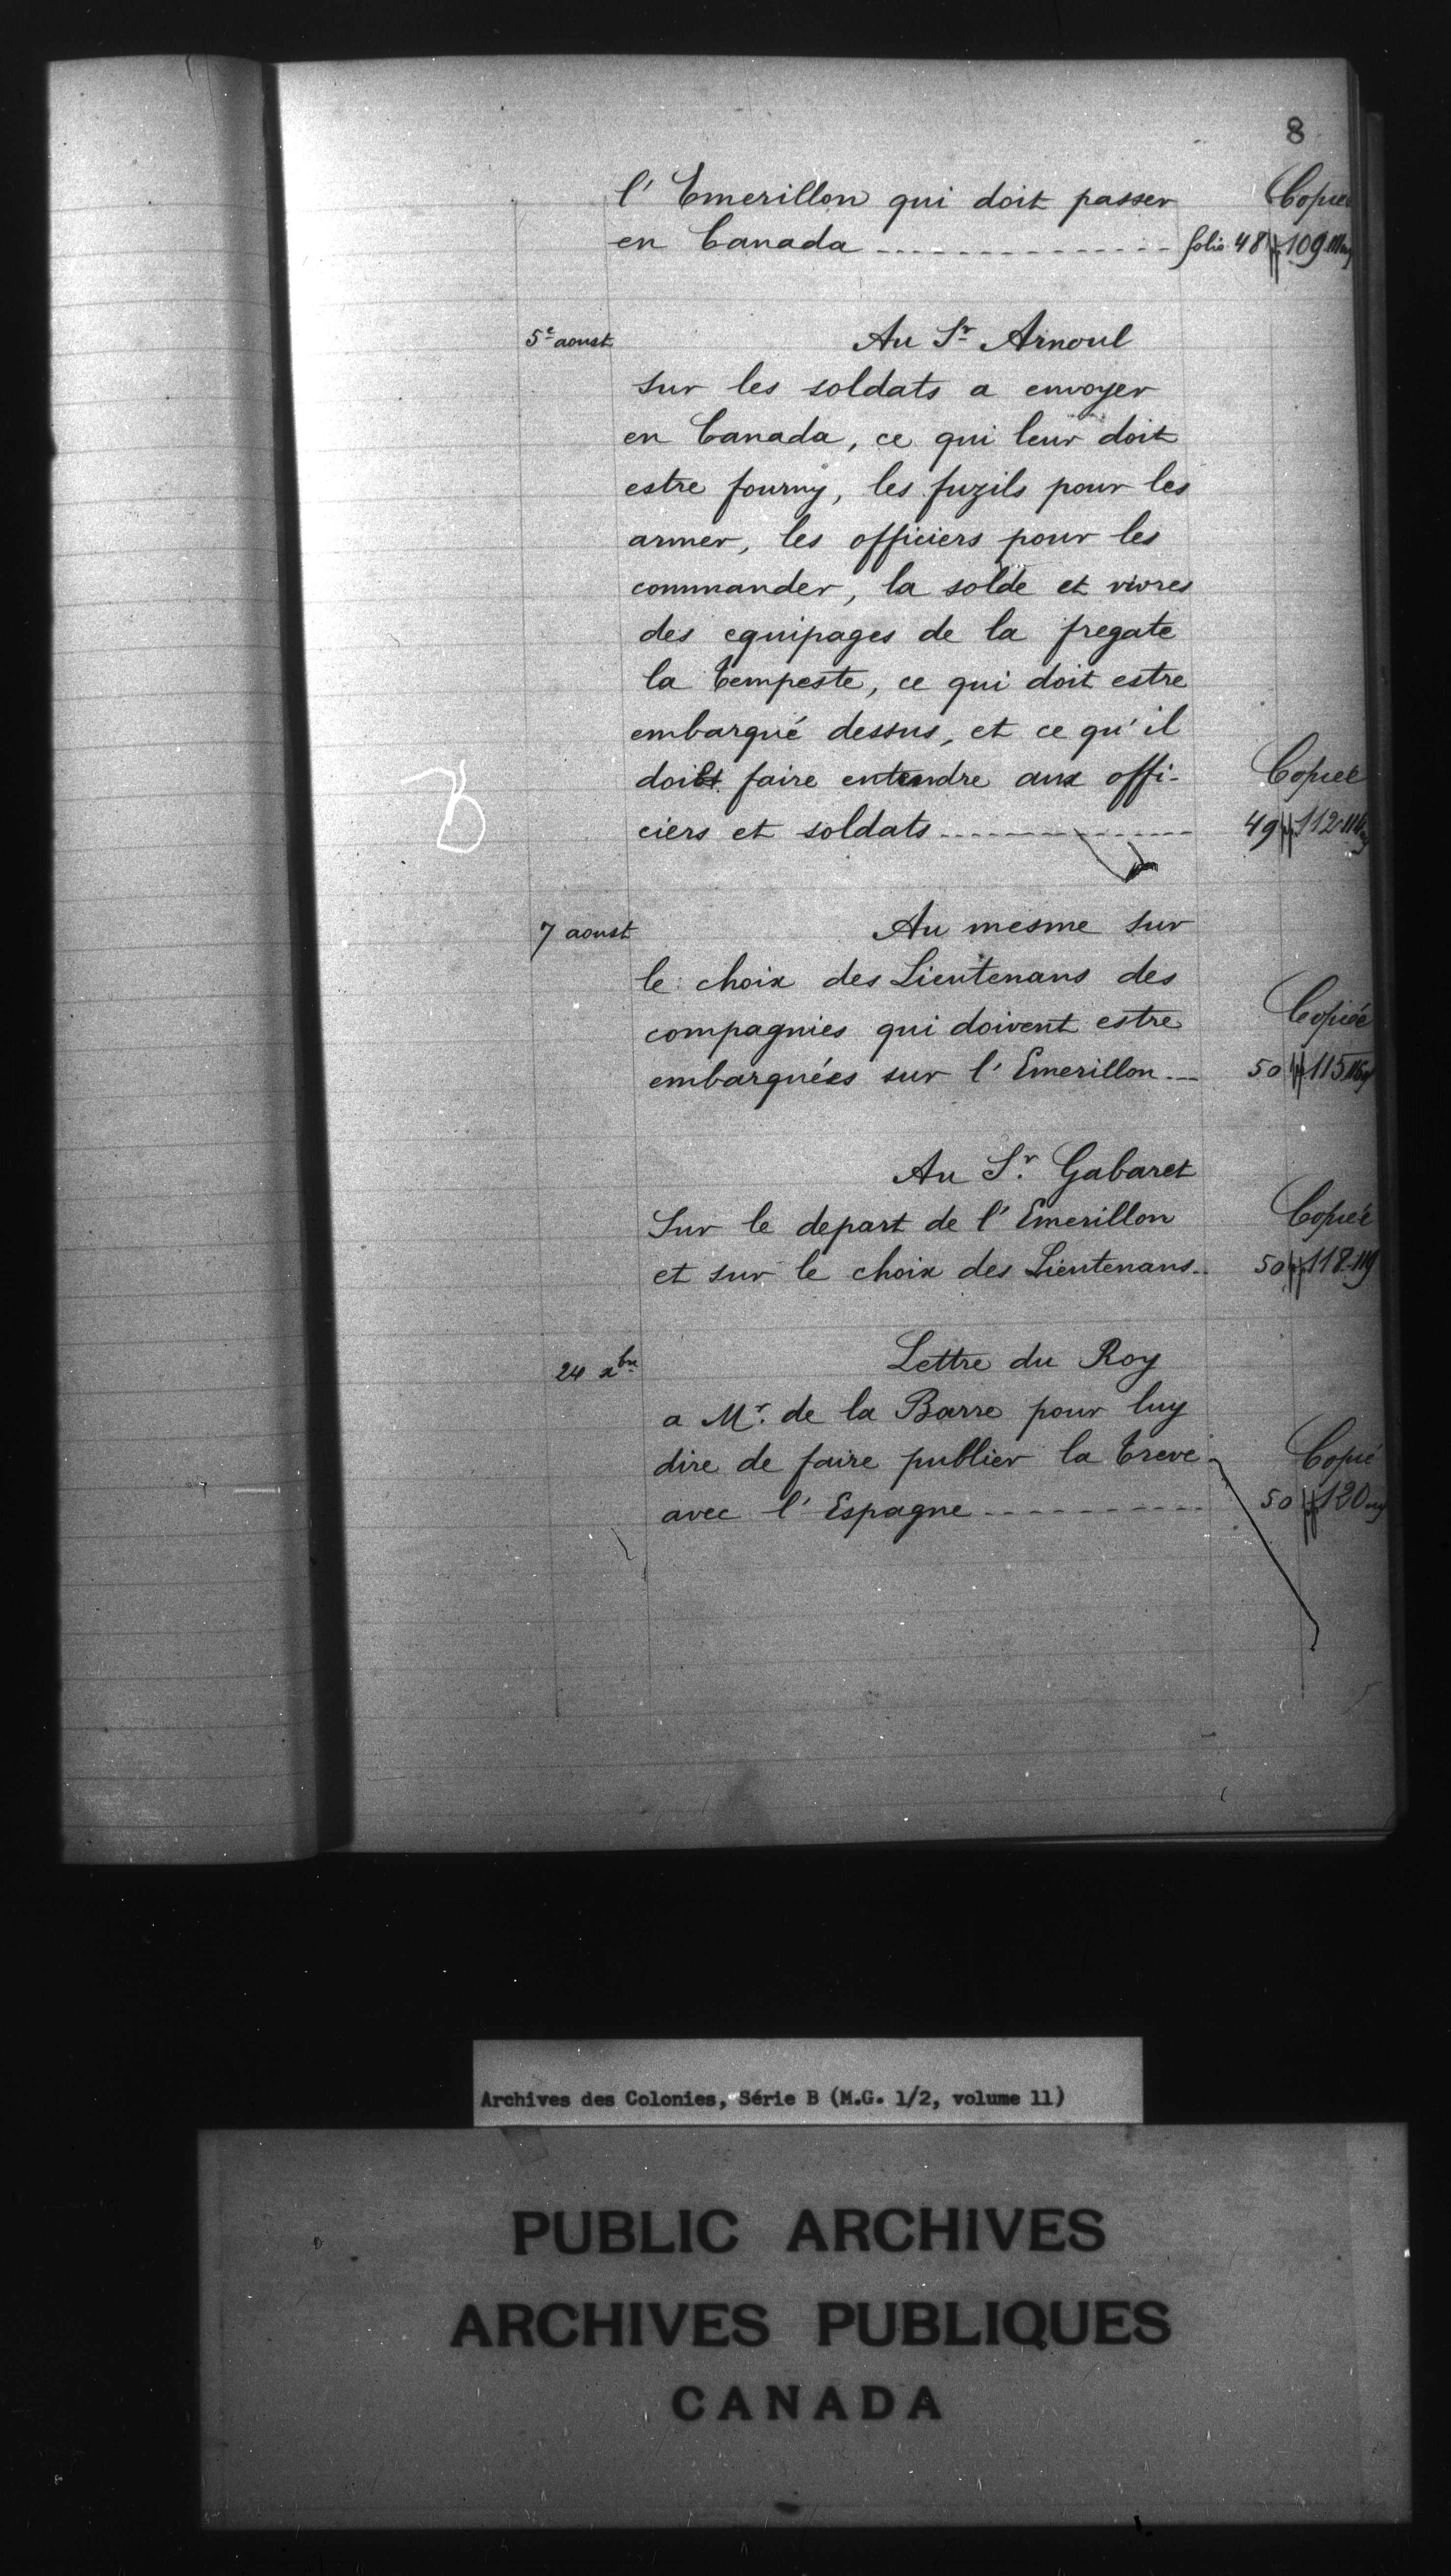 8
l' Emerillon qui doit passer Copiée
en Canada folio 48 pp. 109
5e aoust Au Sr Arnoul
sur les soldats a envoyer
en Canada, ce qui leur doit
estre fourny, les fuzils pour les
armer, les officiers pour les
commander, la solde et vivres
des equipages de la fregate
la Tempeste, ce qui doit estre
embarqué dessus, et ce qu'il
doibt faire entendre aux offi- Copiée
ciers et soldats 49 pp. 112
7 aoust Au mesme sur
le choix des Lieutenans des
compagnies qui doivent estre Copiée
embarquées sur l' Emerillon 50 pp. 115
Au Sr. Gabaret
Sur le depart de l' Emerillon Copiée
et sur le choix des Lieutenans 50 pp. 118-119
24 xbre Lettre du Roy
a Mr. de la Barre pour luy
dire de faire publier la Treve Copié
avec l' Espagne 50 pp. 120
Archives des Colonies, Série B (M.G. 1/2, volume 11)
PUBLIC ARCHIVES
ARCHIVES PUBLIQUES
CANADA